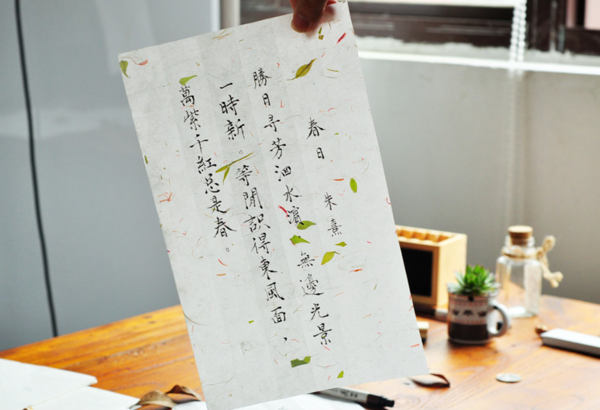 春日 朱熹
勝日寻芳泗水濱，無邊光景
一時新。等閒識得東風面，
萬紫千紅总是春。